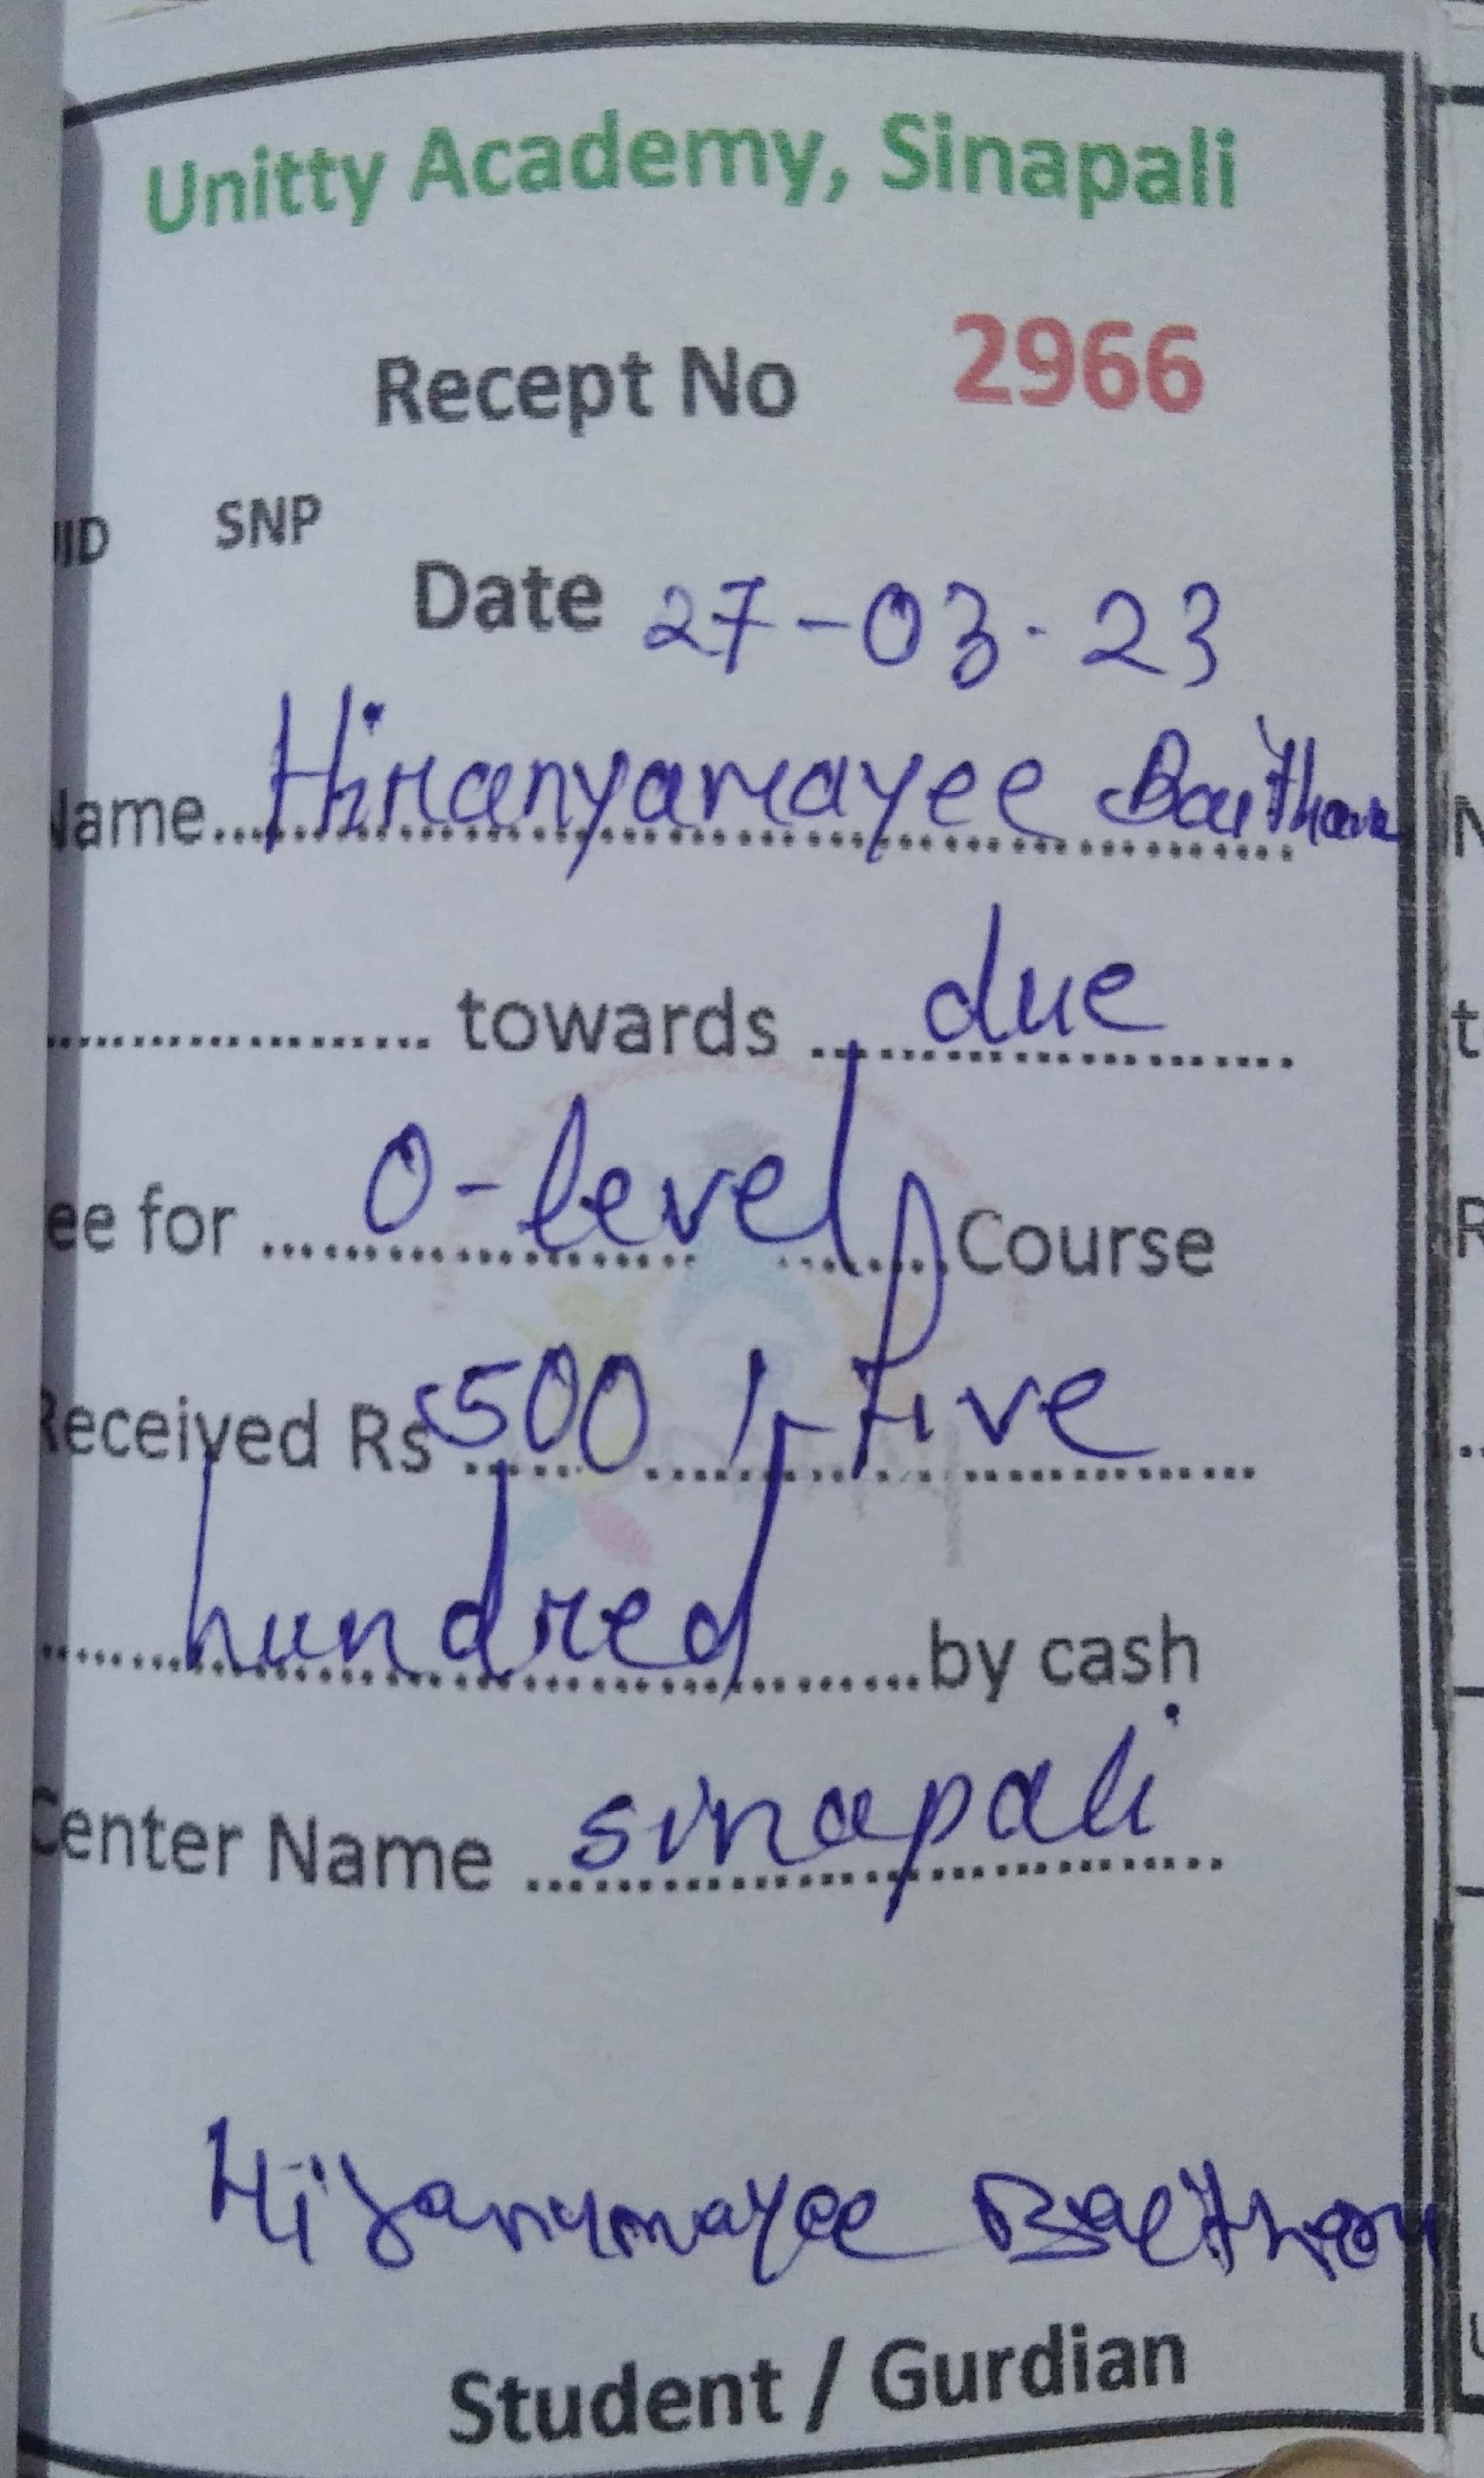 Unitty Academy, Sinapali
Recept No 2966
ID SNP
Date 27-03-23
Name Hiranyamayee Baithar
towards due
ee for O-level Course
Received Rs 500/- five
hundred by cash
Center Name sinapali
Hiranymayee
Student / Gurdian